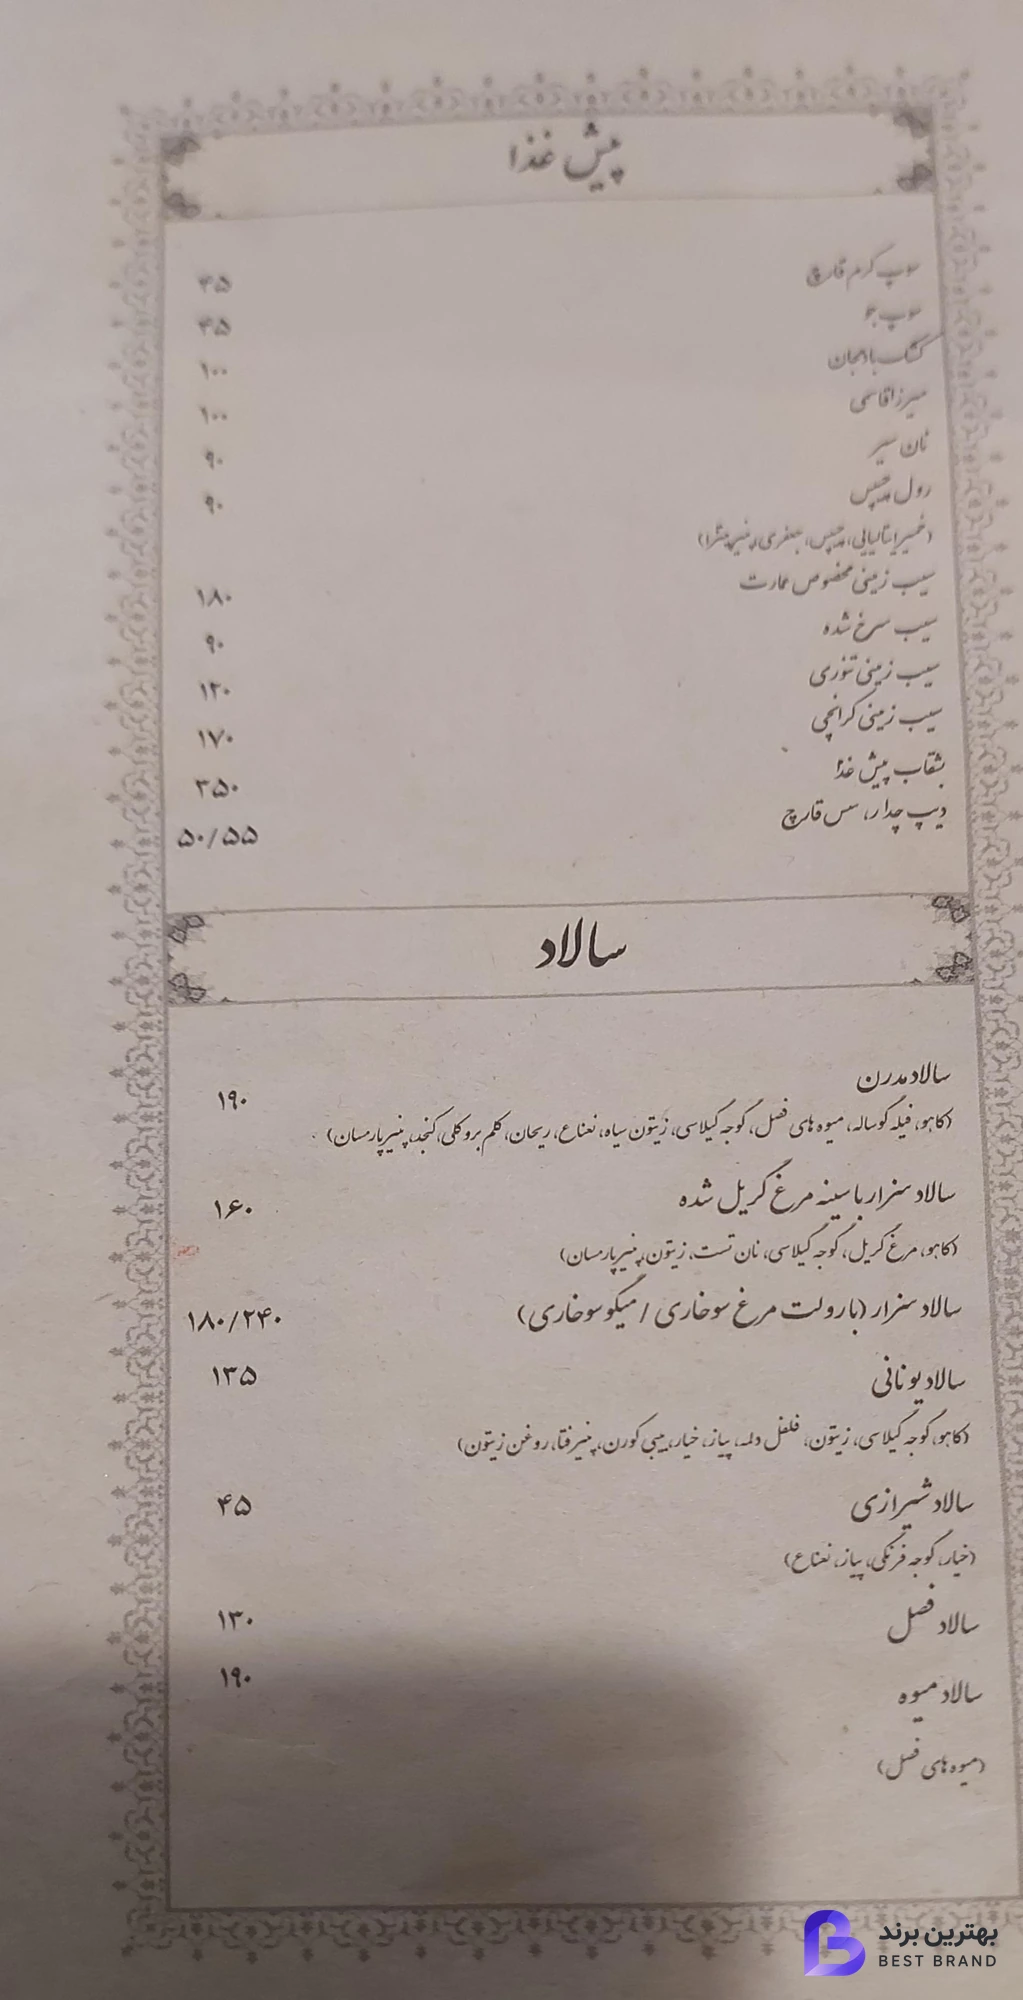 پیش غذا
سوپ کرم قارچ ۴۵
سوپ جو ۴۵
کشک بادمجان ۱۰۰
میرزا قاسمی ۱۰۰
نان سیر ۹۰
رول پدچپس ۹۰
(خمیر ایتالیایی، پدچپس، جعفری، پنیر پیتزا)
سیب زمینی مخصوص عمارت ۱۸۰
سیب سرخ شده ۹۰
سیب زمینی تنوری ۱۲۰
سیب زمینی کرانچی ۱۷۰
بشقاب پیش غذا ۳۵۰
دیپ چدار، سس قارچ ۵۰/۵۵
سالاد
سالاد مدرن ۱۹۰
(کاهو، فیله گوساله، میوه های فصل، گوجه گیلاسی، زیتون سیاه، نعناع، ریحان، کلم بروکلی، کنجد، پنیر پارمسان)
سالاد سزار با سینه مرغ گریل شده ۱۶۰
(کاهو، مرغ گریل، گوجه گیلاسی، نان تست، زیتون، پنیر پارمسان)
سالاد سزار (با رولت مرغ سوخاری / میگو سوخاری) ۱۸۰/۲۴۰
سالاد یونانی ۱۳۵
(کاهو، گوجه گیلاسی، زیتون، فلفل دلمه، پیاز، خیار، بیبی کورن، پنیر فتا، روغن زیتون)
سالاد شیرازی ۴۵
(خیار، گوجه فرنگی، پیاز، نعناع)
سالاد فصل ۱۳۰
سالاد میوه ۱۹۰
(میوه های فصل)
بهترین برند
BEST BRAND